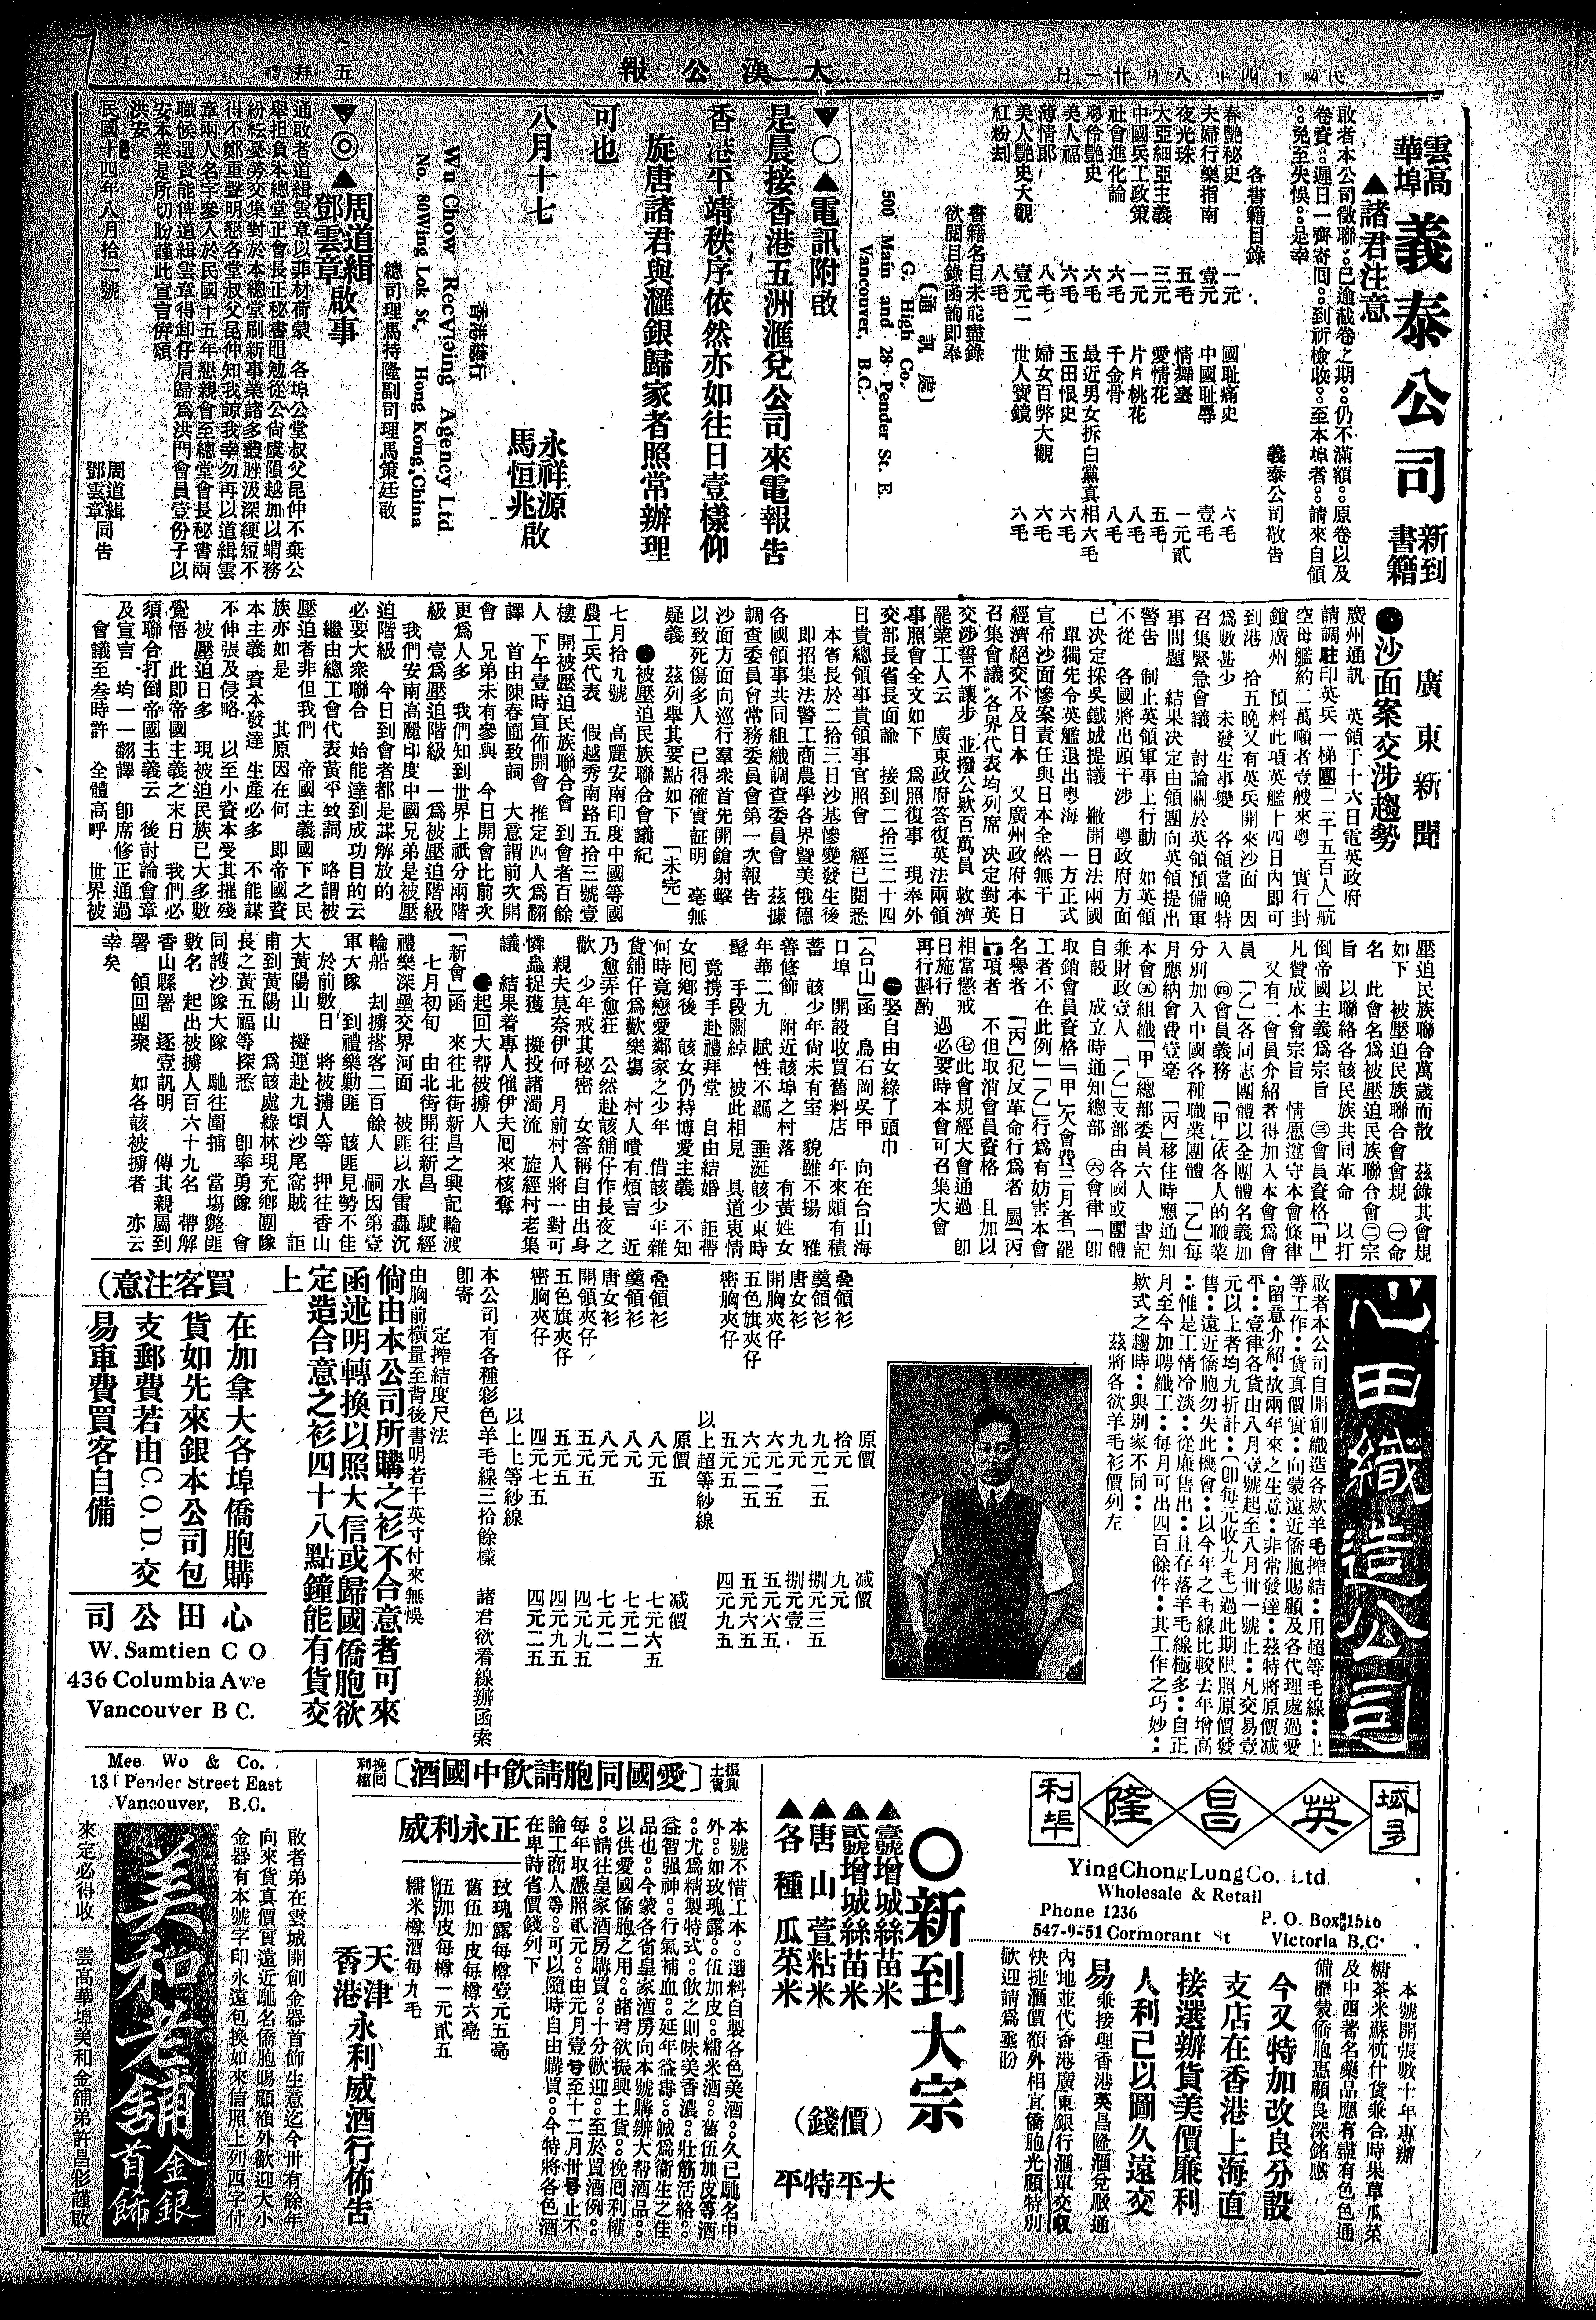 民國十四年八月廿一日
大漢公報
五拜禮
雲高華埠
義泰公司
新到書籍
▲諸君注意
啟者本公司徵聯：已逾截卷之期：仍不滿額：原卷以及
卷資：遲日一齊寄囘：到祈檢收：至本埠者：請來自領
：免至失悞：是幸
義泰公司敬告
各書籍目錄
春艷秘史 一元 國恥痛史 六毛
夫婦行樂指南 壹元 中國恥辱 壹毛
夜光珠 五毛 情舞臺 一元貳
大亞細亞主義 三元 愛情花 五毛
中國兵工政策 一元 片片桃花 八毛
社會進化論 六毛 千金骨 八毛
粵伶艷史 六毛 最近男女拆白黨真相 六毛
美人福 六毛 玉田恨史 六毛
薄情郞 八毛 婦女百弊大觀 六毛
美人艷史大觀 壹元二 世人寶鏡 六毛
紅粉刦 八毛
書籍名目未能盡錄
欲閱目錄函詢即奉
（通訊處）
G. High Co.
500 Main and 28 Pender St. E.
Vancouver, B.C.
▼○▲電訊附啟
是晨接香港五洲滙兌公司來電報告
香港平靖秩序依然亦如往日壹樣仰
旋唐諸君與滙銀歸家者照常辦理
可也
八月十七
永祥源
馬恒兆啟
香港總行
Wu Chow Recvieing Agency Ltd
No. 80 Wing Lok St. Hong Kong, China
總司理馬持隆副司理馬策廷敬
▼◎▲周道緝
鄧雲章啟事
通啟者道緝雲章以非材荷蒙 各埠公堂叔父昆仲不棄公
舉担負本總堂正會長正秘書黽勉從公尙虞隕越加以蝟務
紛紜憂勞交集對於本總堂刷新事業諸多叢脞汲深綆短不
得不鄭重聲明懇各堂叔父昆仲知我諒我幸勿再以道緝雲
章兩人名字參入於民國十五年懇親會至總堂會長秘書兩
職候選賢能俾道緝雲章得卸仔肩歸爲洪門會員壹份子以
安本業是所切盼謹此宣言倂頌
洪安
民國十四年八月拾一號
周道緝
鄧雲章同告
廣東新聞
●沙面案交涉趨勢
廣州通訊 英領于十六日電英政府
請調駐印英兵一梯團「二千五百人」航
空母艦約二萬噸者壹艘來粵 實行封
鎖廣州 預料此項英艦十四日內即可
到港 拾五晚又有英兵開來沙面 因
爲數甚少 未發生事變 各領當晚特
召集緊急會議 討論關於英領預備軍
事問題 結果決定由領團向英領提出
警告 制止英領軍事上行動 如英領
不從 各國將出頭干涉 粵政府方面
已決定採吳鐵城提議 撇開日法兩國
單獨先令英艦退出粵海 一方正式
宣布沙面慘案責任與日本全然無干
經濟絕交不及日本 又廣州政府本日
召集會議 各界代表均列席 決定對英
交涉誓不讓步 並撥公欵百萬員 救濟
罷業工人云 廣東政府答復英法兩領
事照會全文如下 爲照復事 現奉外
交部長省長面諭 接到二拾三二十四
日貴總領事貴領事官照會 經已閱悉
本省長於二拾三日沙基慘變發生後
即招集法警工商農學各界暨美俄德
各國領事共同組織調查委員會 茲據
調查委員會常務委員會第一次報告
沙面方面向巡行羣衆首先開鎗射擊
以致死傷多人 已得確實証明 毫無
疑義 茲列舉其要點如下 「未完」
●被壓迫民族聯合會議紀
七月拾九號 高麗安南印度中國等國
農工兵代表 假越秀南路五拾三號壹
樓 開被壓迫民族聯合會 到會者百餘
人 下午壹時宣佈開會 推定四人爲翻
譯 首由陳春圃致詞 大意謂前次開
會 兄弟未有參與 今日開會比前次
更爲人多 我們知到世界上祇分兩階
級 壹爲壓迫階級 一爲被壓迫階級
我們安南高麗印度中國兄弟是被壓
迫階級 今日到會者都是謀解放的
必要大衆聯合 始能達到成功目的云
繼由總工會代表黃平致詞 略謂被
壓迫者非但我們 帝國主義國下之民
族亦如是 其原因在何 即帝國資
本主義 資本發達 生產必多 不能謀
不伸張及侵略 以至小資本受其摧殘
被壓迫日多 現被迫民族已大多數
覺悟 此即帝國主義之末日 我們必
須聯合打倒帝國主義云 後討論會章
及宣言 均一一翻譯 卽席修正通過
會議至叁時許 全體高呼 世界被
壓迫民族聯合萬歲而散 茲錄其會規
如下 被壓迫民族聯合會會規 ㊀命
名 此會名爲被壓迫民族聯合會㊁宗
旨 以聯絡各該民族共同革命 以打
倒帝國主義爲宗旨 ㊂會員資格「甲」
凡贊成本會宗旨 情愿遵守本會條律
又有二會員介紹者得加入本會爲會
員 「乙」各同志團體以全團體名義加
入 ㊃會員義務 「甲」依各人的職業
分別加入中國各種職業團體 「乙」每
月應納會費壹毫 「丙」移住時應通知
本會㊄組織「甲」總部委員六人 書記
兼財政壹人 「乙」支部由各國或團體
自設 成立時通知總部 ㊅會律「卽
取銷會員資格」「甲」欠會費三月者「罷
工者不在此例」「乙」行爲有妨害本會
名譽者 「丙」犯反革命行爲者 屬「丙
」項者 不但取消會員資格 且加以
相當懲戒 ㊆此會規經大會通過 卽
日施行 遇必要時本會可召集大會
再行斟酌
●娶自由女綠了頭巾
「台山」函 烏石岡吳甲 向在台山海
口埠 開設收買舊料店 年來頗有積
蓄 該少年尙未有室 貌雖不揚 雅
善修飾 附近該埠之村落 有黃姓女
年華二九 賦性不羈 垂涎該少東時
髦 手段闊綽 被此相見 具道衷情
竟携手赴禮拜堂 自由結婚 詎帶
女囘鄉後 該女仍持博愛主義 不知
何時竟戀愛鄰家之少年 借該少年雜
貨舖仔爲歡樂塲 村人嘖有煩言 近
乃愈弄愈狂 公然赴該舖仔作長夜之
歡 少年戒其秘密 女答稱自由出身
親夫莫奈伊何 月前村人將一對可
憐蟲捉獲 擬投諸濁流 旋經村老集
議 結果着專人催伊夫囘來核奪
●起回大帮被擄人
「新會」函 來往北街新昌之興記輪渡
七月初旬 由北街開往新昌 駛經
禮樂深壘交界河面 被匪以水雷轟沉
輪船 刦擄搭客二百餘人 嗣因第壹
軍大隊 到禮樂勦匪 該匪見勢不佳
於前數日 將被擄人等 押往香山
大黃陽山 擬運赴九頃沙尾窩賊 詎
甫到黃陽山 爲該處綠林現充鄉團隊
長之黃五福等探悉 卽率勇隊 會
同護沙隊大隊 馳往圍捕 當塲斃匪
數名 起出被擄人百六十九名 帶解
香山縣署 逐壹訊明 傳其親屬到
署 領回團聚 如各該被擄者 亦云
幸矣
心田織造公司
啟者本公司自開創織造各欵羊毛搾結：用超等毛線：上
等工作：貨真價實：向蒙遠近僑胞賜顧及各代理處過愛
留意介紹：故兩年來之生意：非常發達：茲特將原價減
平：壹律各貨由八月壹號起至八月卅一號止：凡交易壹
元以上者均九折計：（卽每元收九毛）過此期限照原價發
售：遠近僑胞勿失此機會：以今年之毛線比較去年增高
：惟是工情冷淡：從廉售出：且存落羊毛線極多：自正
月至今加聘織工：每月可出四百餘件：其工作之巧妙：
欵式之趨時：與別家不同：
茲將各欵羊毛衫價列左
原價 减價
叠領衫 拾元 九元
羹領衫 九元二五 捌元三五
唐女衫 九元 捌元壹
開胸夾仔 六元二五 五元六五
五色旗夾仔 六元二五 五元六五
密胸夾仔 五元五 四元九五
以上超等紗線
原價 减價
叠領衫 八元五 七元六五
羹領衫 八元 七元二
唐女衫 八元 七元二
開領夾仔 五元五 四元九五
五色旗夾仔 五元五 四元九五
密胸夾仔 四元七五 四元二五
以上上等紗線
本公司有各種彩色羊毛線三拾餘樣 諸君欲看線辦函索
卽寄
定搾結度尺法
由胸前橫量至背後書明若干英寸付來無悞
倘由本公司所購之衫不合意者可來
函述明轉換以照大信或歸國僑胞欲
定造合意之衫四十八點鐘能有貨交
上
（買客注意）
在加拿大各埠僑胞購
貨如先來銀本公司包
支郵費若由C.O.D.交
易車費買客自備
心田公司
W. Samtien C O
436 Columbia Ave
Vancouver B C.
域多利埠
英昌隆
Ying Chong Lung Co. Ltd.
Wholesale & Retail
Phone 1236
P. O. Box 1516
547-9-51 Cormorant St
Victoria B.C.
本號開張數十年專辦
糖茶米蘇杭什貨兼合時果草瓜菜
及中西著名藥品應有盡有色色通
備歷蒙僑胞惠顧良深銘感
今又特加改良分設
支店在香港上海直
接選辦貨美價廉利
人利己以圖久遠交
易兼接理香港英昌隆滙兌駁通
內地並代香港廣東銀行滙單交收
快捷滙價額外相宜僑胞光顧特別
歡迎請爲垂盼
○新到大宗
▲壹號增城絲苗米
▲貳號增城絲苗米
▲唐山萱粘米
▲各種瓜菜米
（價錢）
大平特平
振興土貨
〔愛國同胞請飲中國酒〕
挽囘利權
本號不惜工本：選料自製各色美酒：久已馳名中
外：如玫瑰露：伍加皮：糯米酒：舊伍加皮等酒
：尤爲精製特式：飲之則味美香濃：壯筋活絡：
益智强神：行氣補血：延年益壽：誠爲衞生之佳
品也：今蒙各省皇家酒房向本號購辦大帮酒品：
以供愛國僑胞之用：諸君欲振興土貨：挽囘利權
：請往皇家酒房購買：十分歡迎：至於買酒例：
每年取憑照貳元：由元月壹號至十二月卅號止不
論工商人等：可以隨時自由購買：今特將各色酒
在卑詩省價錢列下
正永利威
玫瑰露每樽壹元五毫
舊伍加皮每樽六毫
伍加皮每樽一元貳五
糯米樽酒每九毛
天津
香港永利威酒行佈告
Mee Wo & Co.
131 Pender Street East
Vancouver, B.C.
啟者弟在雲城開創金器首飾生意迄今卅有餘年
向來貨真價實遠近馳名僑胞賜顧額外歡迎大小
金器有本號字印永遠包換如來信照上列西字付
美和老舖
金銀首飾
來定必得收 雲高華埠美和金舖弟許昌彩謹啟